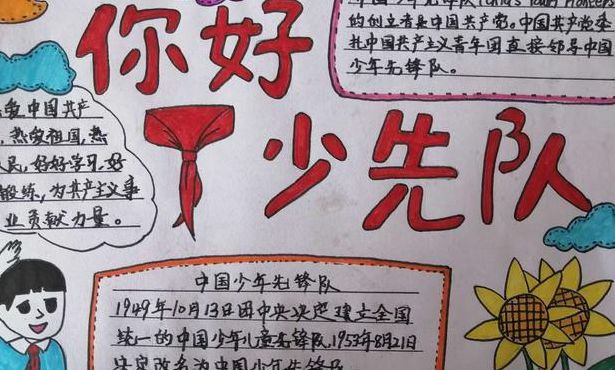 你好
少先队
的创立者是中国共产党。中国共产党委
托中国共产主义青年团直接领导中国
少年先锋队。
爱中国共产
热爱祖国,热
人民,好好学习,好
锻炼,为共产主义事
业贡献力量。
中国少年先锋队
1949年10月13日团中央决定建立全国
统一的中国少年儿童先锋队,1953年8月21日